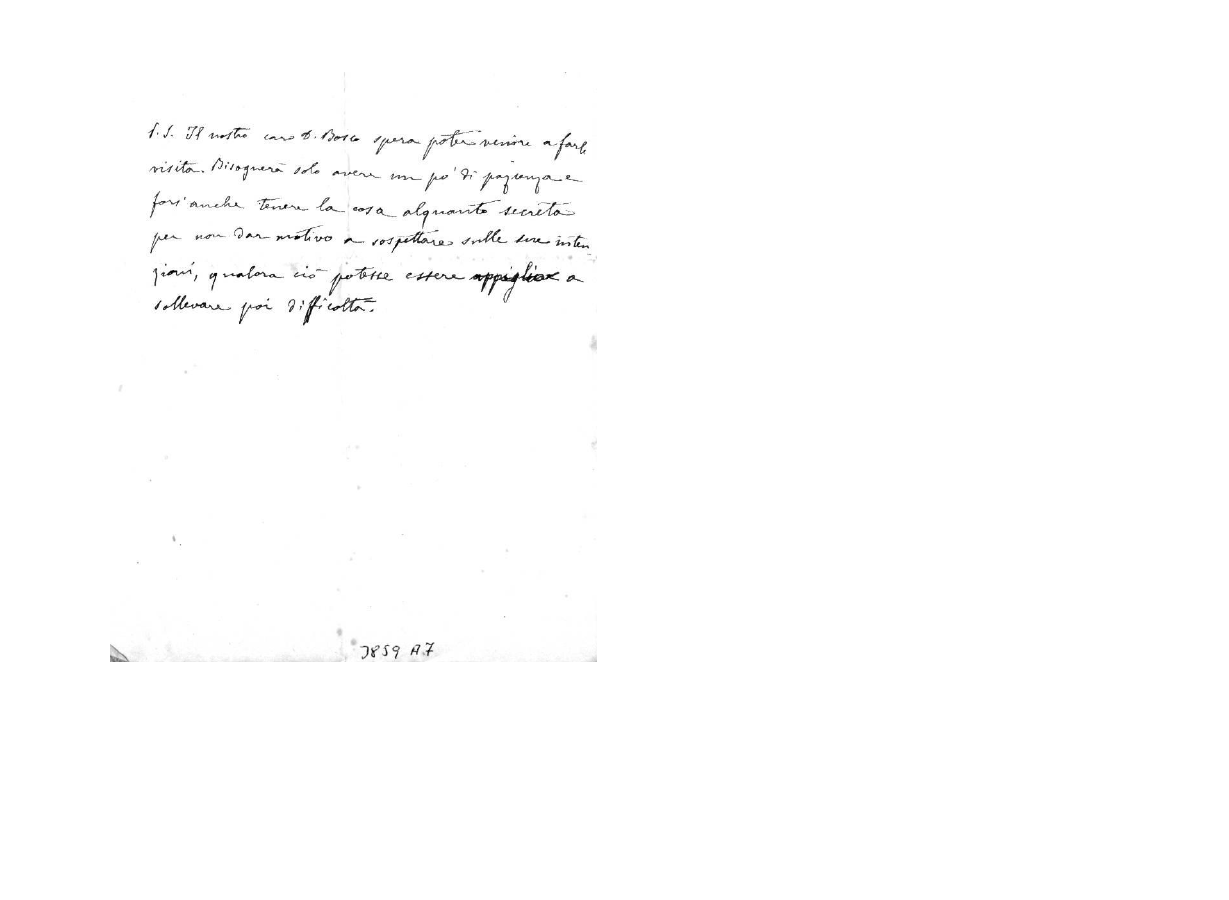 P.S. Il nostro caro D. Bosco spera poter venire a farle
visita. Bisognerà solo avere un po' di pazienza e
fors'anche tenere la cosa alquanto secreta
per non dar motivo a sospettare sulle sue inten
zioni, qualora ciò potesse essere appiglio a
sollevare poi difficoltà.
3859 A7